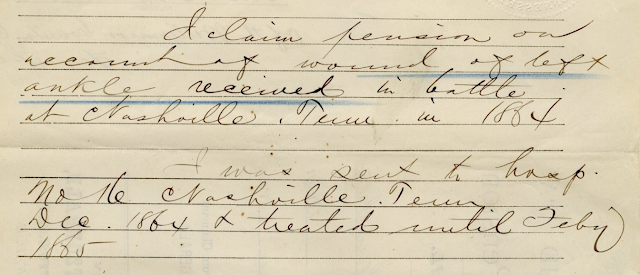 I claim pension on
account of wound of left
ankle received in battle
at Nashville. Tenn. in 1864
I was sent to hosp.
No 16 Nashville. Tenn
Dec. 1864 & treated until Feby
1865